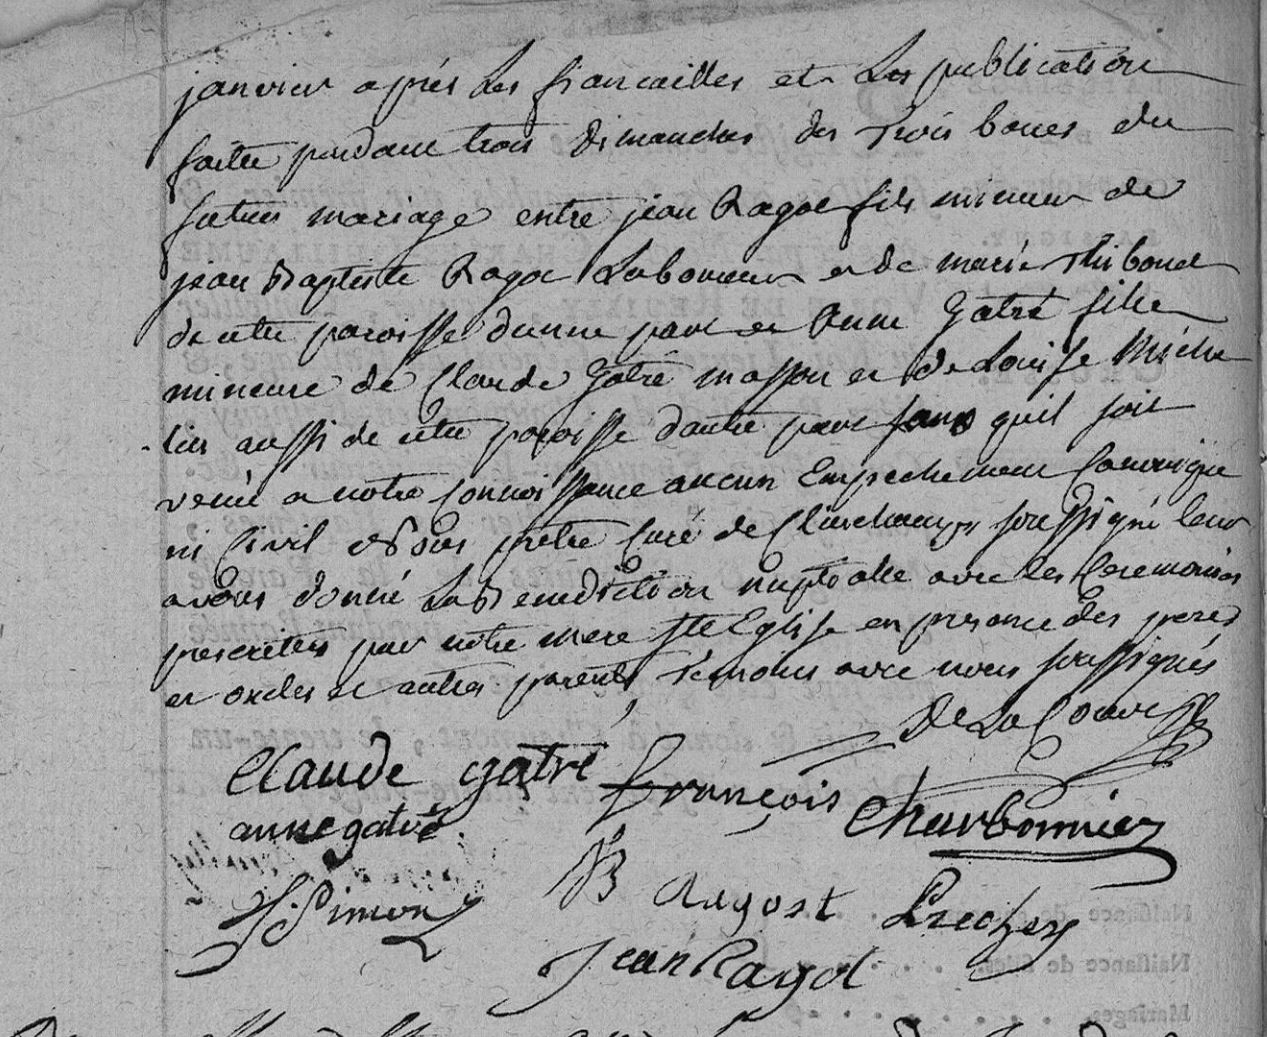 janvier après les fiancailles et les publication
faitte pendant trois dimanches des trois bancs du
futur mariage entre jean Ragot fils mineur de
jean Baptiste Ragot Laboureur et de marie Thiboust
de cette paroisse d'une part et Anne Gatré fille
mineure de Claude Gatré masson et de Louisse Miche
-lin aussi de cette paroisse dautre part sans quil soit
venu a notre connoissance aucun Empechement Canonique
ni Civil Nous prêtre curé de soussigné leur
avons donné la Benediction nuptialle avec les Ceremonies
prescrittes par notre mere Ste Eglise en presance des peres
et oncles et autres parents, temoins avec nous soussignés
De La Cour
Claude gatré françois Charbonnier
anne gatré
JB Ragost
Simon
Jean Ragot